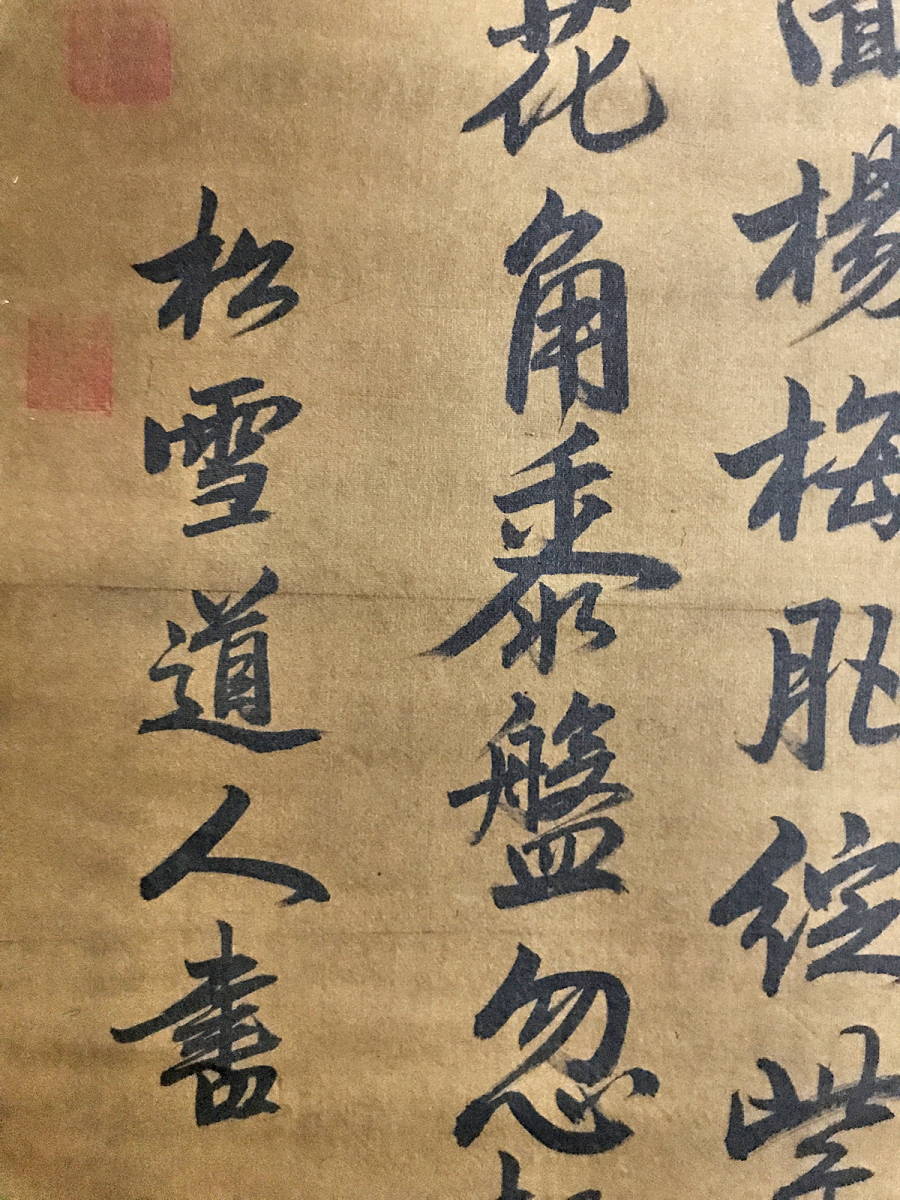 楊梅肥綻紫
花角黍盤忽
松雪道人書